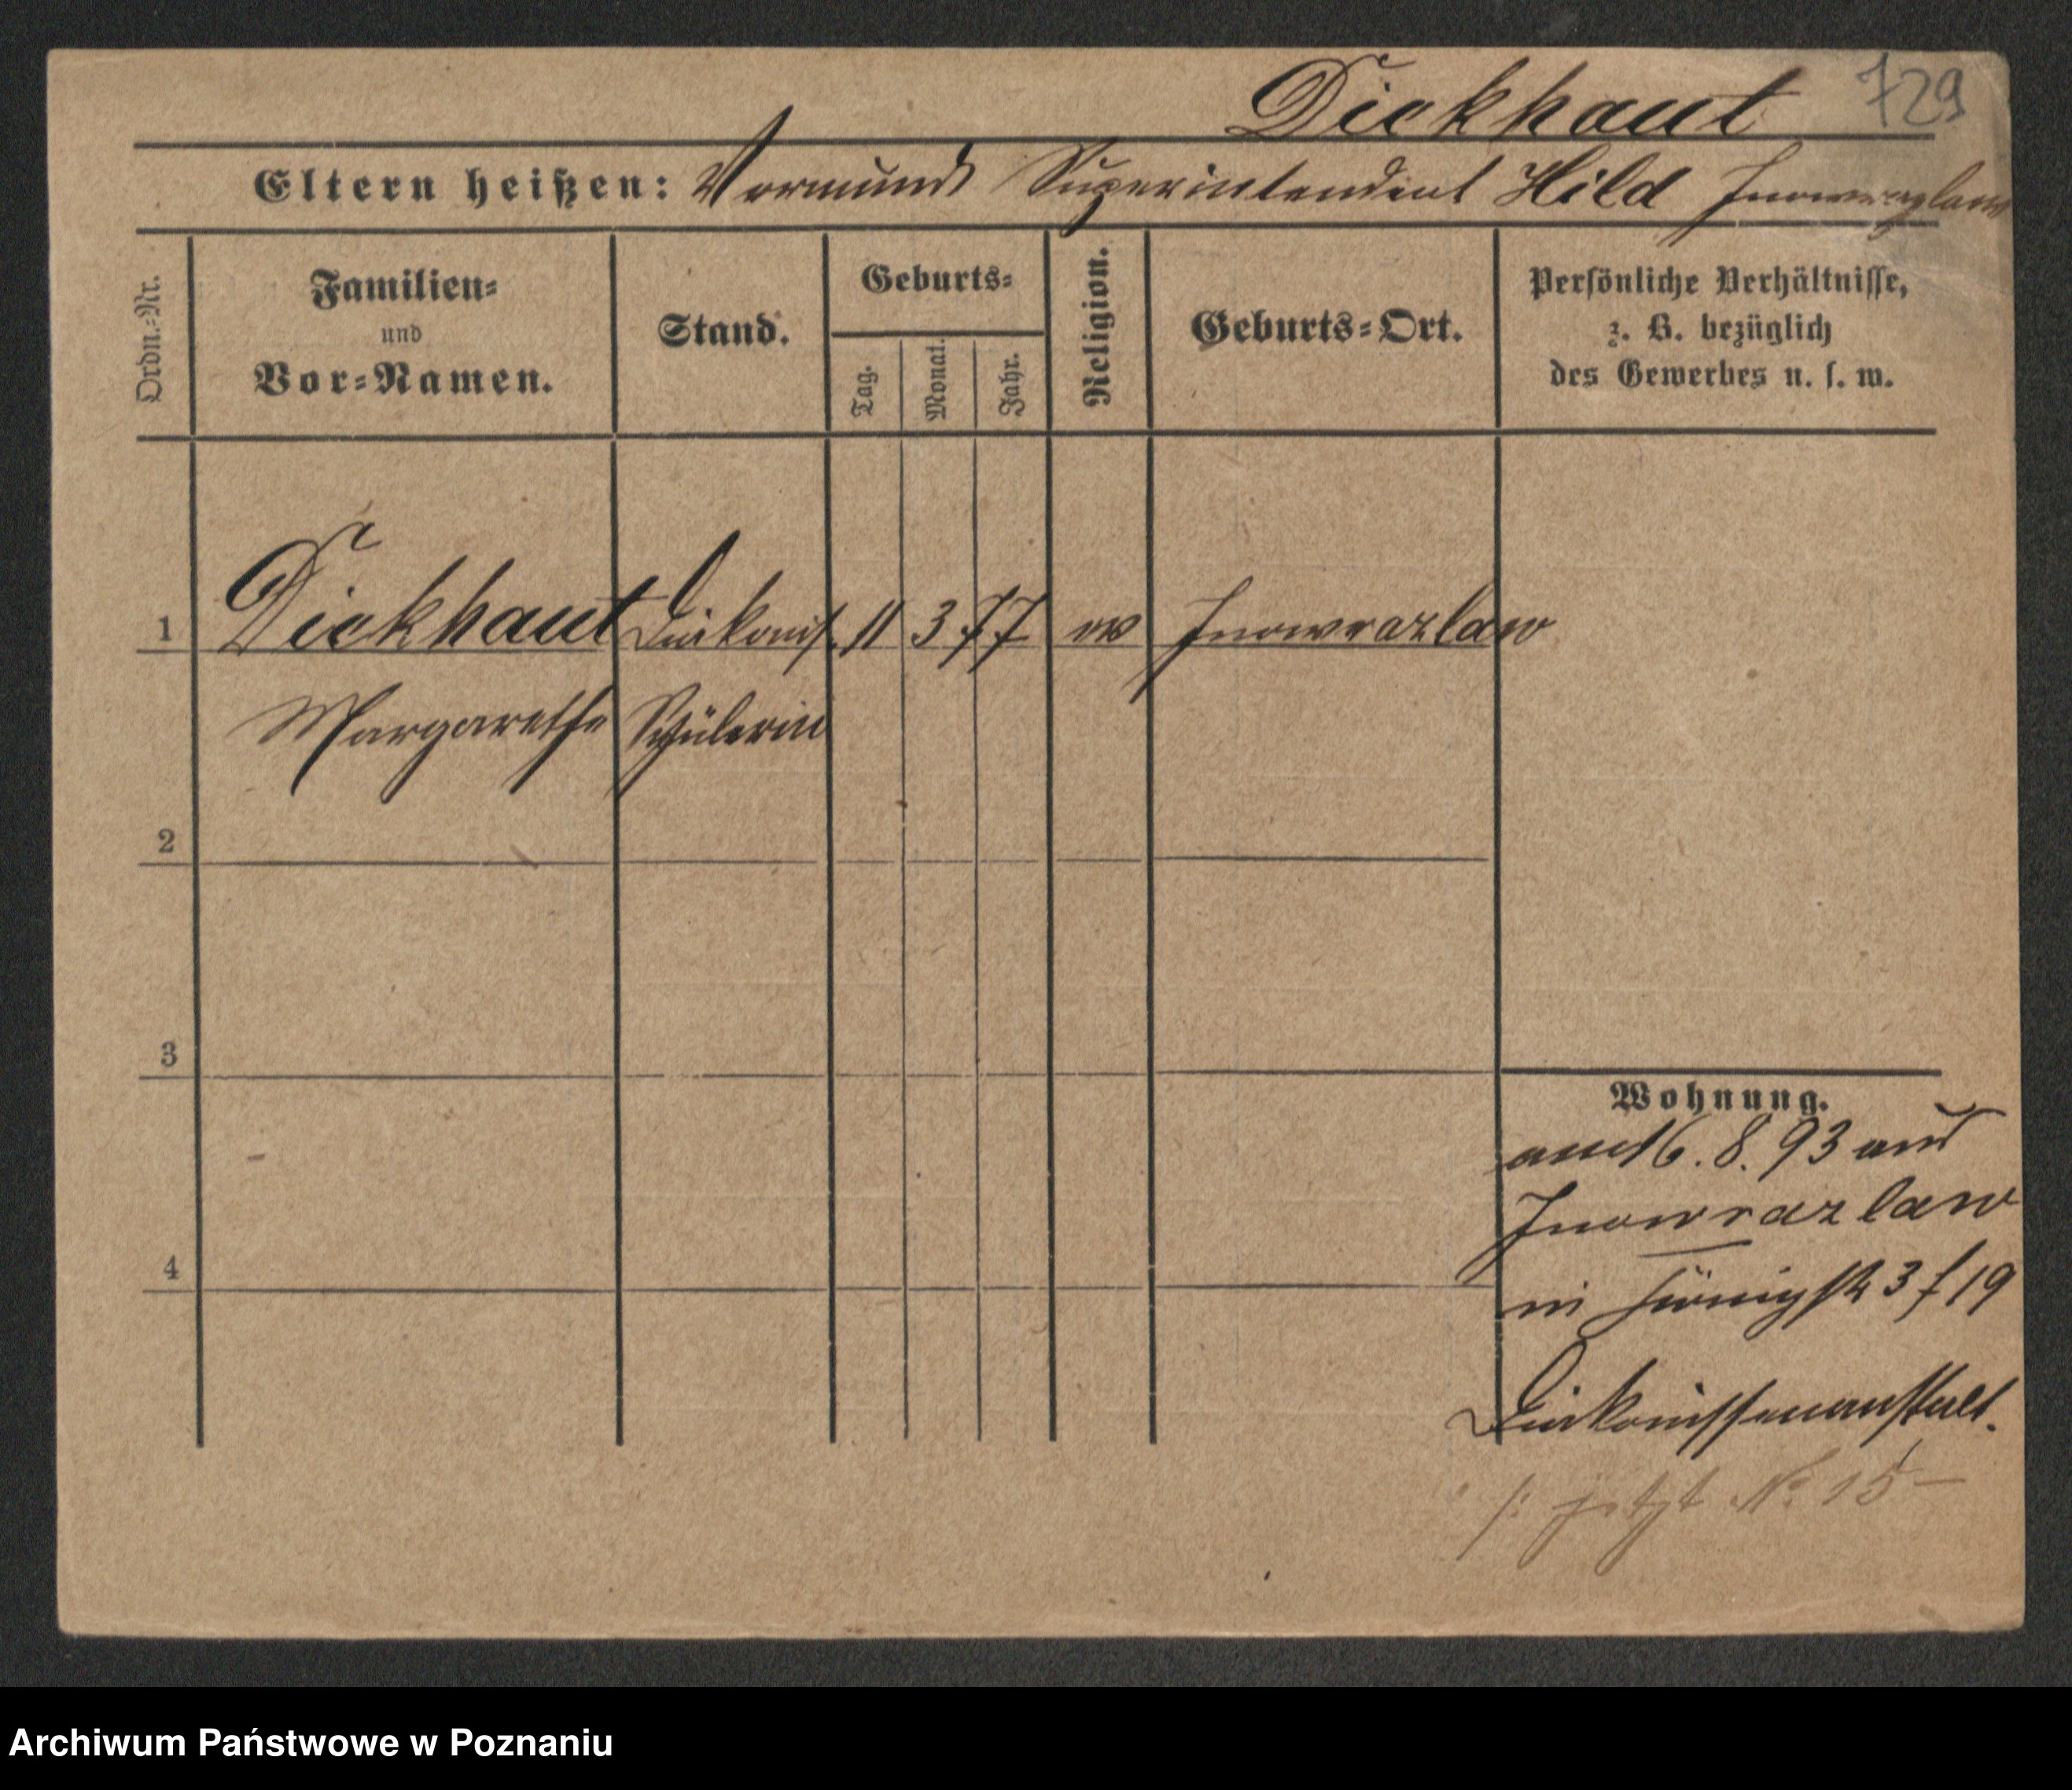 Dickhaut 729
Eltern heißen: Vormund Superintendent Hild Inowrazlaw
Ordn.-Nr.
Familien-
und
Vor-Namen.
Stand.
Geburts-
Tag.
Monat.
Jahr.
Religion.
Geburts-Ort.
Persönliche Verhältnisse,
z. B. bezüglich
des Gewerbes u. s. w.
1 Dickhaut Diakoniss. 11 3 77 ev Inowrazlaw
Margarethe Schülerin
2
3
4
Wohnung.
16. 8. 93 aus
Inowrazlaw
in Königstr 3 f 19
Diakonissenanstalt.
/: jetzt No 15 —
Archiwum Państwowe w Poznaniu